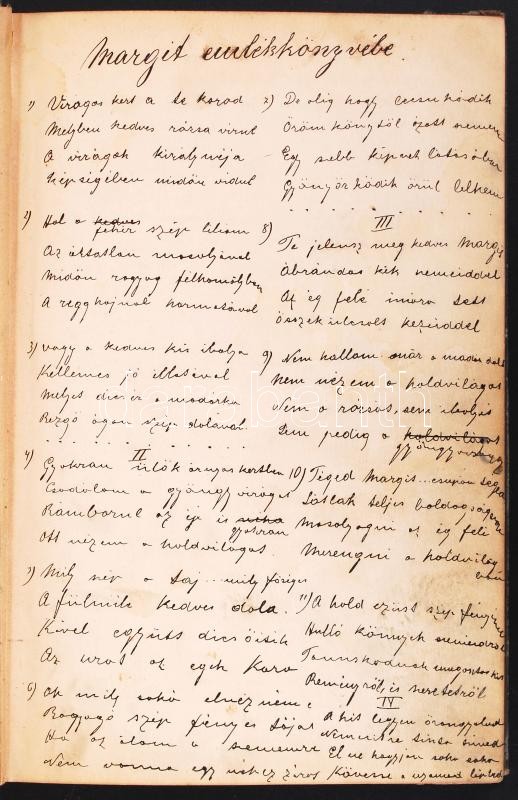 Margit emlékkönyvébe.
1) Virágos kert a te korod
Melyben kedves rózsa virul
A virágok királynéja
Szépségében midőn vidul
2) Hol a kedves
fehér szép liliom
Az ártatlan mosolyával
Midőn ragyog félhomályban
A régg hajnal harmatával
3) vagy a kedves kis ibolya
Kellemes jó illatával
Melyet dicsér a madárka
Rezgő ágon szép dalával.
II
4) Gyakran ülök árnyas kertben
Csodálom a gyöngyvirágot
Rámborul az éj is néha
gyakran
Ott nézem a holdvilágot.
5) Mily szép a táj... mily fönséges
A fülmile kedves dala.
Kivel együtt dicsőitik
Az urat az egek Kara
6) oh mily soká elnézném
Ragyogó szép fényes
Ha az álom a szememre
Nem vonna egy
7) De alig hogy
Öröm könytől ázott szemem
Egy szebb képnek látásában
Gyönyörködik örül lelkem
III
8) Te jelensz meg kedves Margit
Ábrándos kék szemeiddel
Az ég felé imára tett
Összekulcsolt kezeiddel
9) Nem hallom már a madár dalt
Nem nézem a holdvilágot
Nem a rózsát, sem ibolyát
Sem pedig a holdvilágot
gyöngyvirágot
10) Téged Margit... csupán téged
Látlak teljes boldogságban
Mosolyogni az ég felé
Merengni a holdvilágban
11) A hold ezüst szép fényénél
Hulló könnyek szemeidről
Tanuskodnak
Reményről, is szeretetről
IV
A hit legyen őrangyalod
El ne hagyjon soha soha
Kövesse